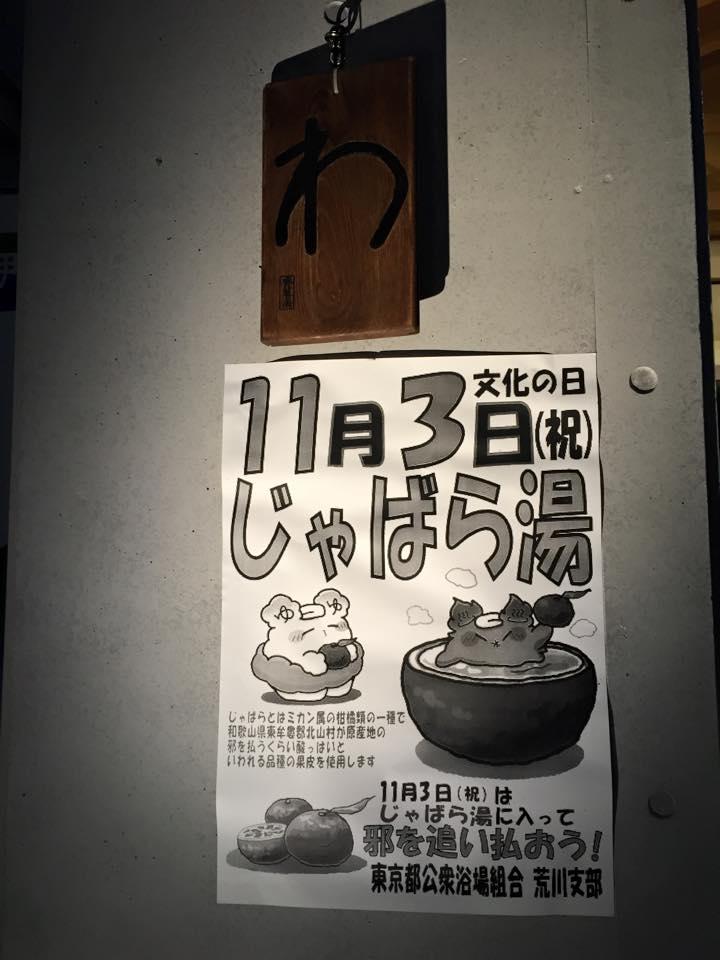 わ
文化の日
11月3日(祝)
じゃばら湯
ゆ ゆ
じゃばらとはミカン属の柑橘類の一種で
和歌山県東牟婁郡北山村が原産地の
邪を払うくらい酸っぱいと
いわれる品種の果皮を使用します
11月3日(祝)は
じゃばら湯に入って
邪を追い払おう!
東京都公衆浴場組合 荒川支部